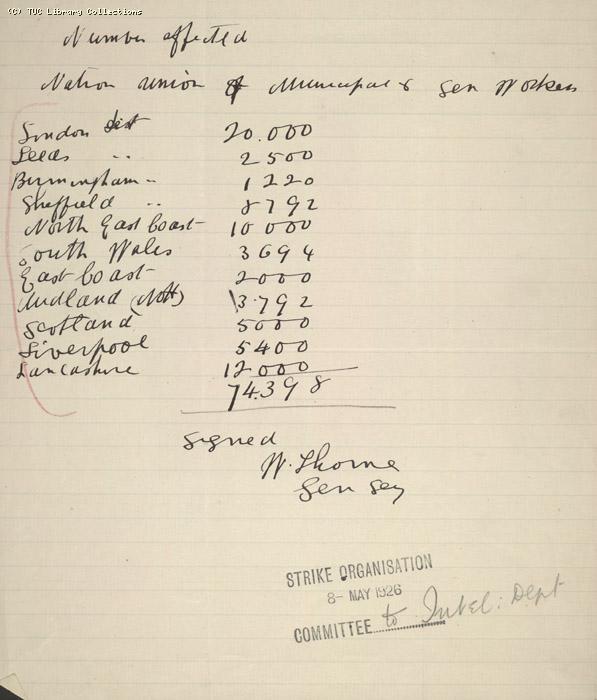 (C) TUC Library Collections
Number affected
Nation union of Municipal & Gen Workers
London dist 20.000
Leeds .. 2500
Birmingham .. 1220
Sheffield .. 8792
North East Coast 10000
South Wales 3694
East Coast 2000
Midland (Nott) 3.792
Scotland 5000
Liverpool 5400
Lancashire 12000
74.398
Signed
W. Thorne
Gen Sey
STRIKE ORGANISATION
8- MAY 1926
COMMITTEE to Intel: Dept